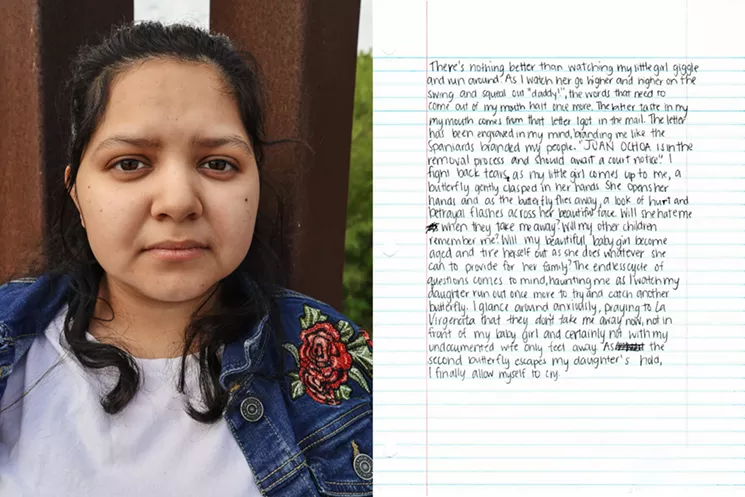 There's nothing better than watching my little girl giggle
and run around. As I watch her go higher and higher on the
swing and squeal out "daddy!", the words that need to
come out of my mouth halt once more. The bitter taste in my
my mouth comes from that letter I got in the mail. The letter
has been engraved in my mind, branding me like the
Spaniards branded my people. "JUAN OCHOA is in the
removal process and should await a court notice." I
fight back tears, as my little girl comes up to me, a
butterfly gently clasped in her hands. She opens her
hands and as the butterfly flies away, a look of hurt and
betrayal flashes across her beautiful face. Will she hate me
when they take me away? Will my other children
remember me? Will my beautiful baby girl become
aged and tire herself out as she does whatever she
can to provide for her family? The endless cycle of
questions comes to mind, haunting me as I watch my
daughter run out once more to try and catch another
butterfly. I glance around anxiously, praying to La
Virgencita that they don't take me away now, not in
front of my baby girl and certainly not with my
undocumented wife only feet away. As the
second butterfly escapes my daughter's hold,
I finally allow myself to cry.